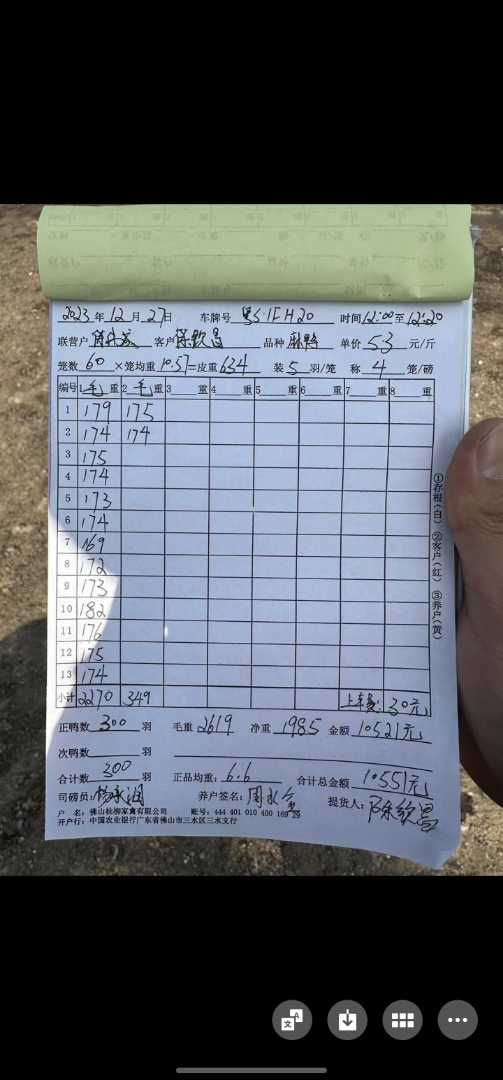 2023年12月27日 车牌号 粤S·1EH20 时间12:00至12:20
联营户 客户 陈钦昌 品种 麻鸭 单价 5.3 元/斤
笼数 60 ×笼均重 10.57=皮重 634 装 5 羽/笼 称 4 笼/磅
编号 1毛重 2毛重 3 重 4 重 5 重 6 重 7 重 8 重
1 179 175
2 174 174
3 175
4 174
5 173
6 174
7 169
8 172
9 173
10 182
11 176
12 175
13 174
小计 2270 349 上车费:30元
正鸭数 300 羽 毛重 2619 净重 1985 金额 10521元
次鸭数 羽
合计数 300 羽 正品均重: 6.6 合计总金额 10551元
司磅员: 养户签名: 提货人: 陈钦昌
户 名: 佛山桂柳家禽有限公司 账号: 444 401 010 400 169 29
开户行: 中国农业银行广东省佛山市三水区三水支行
①存根(白) ②客户(红) ③养户(黄)